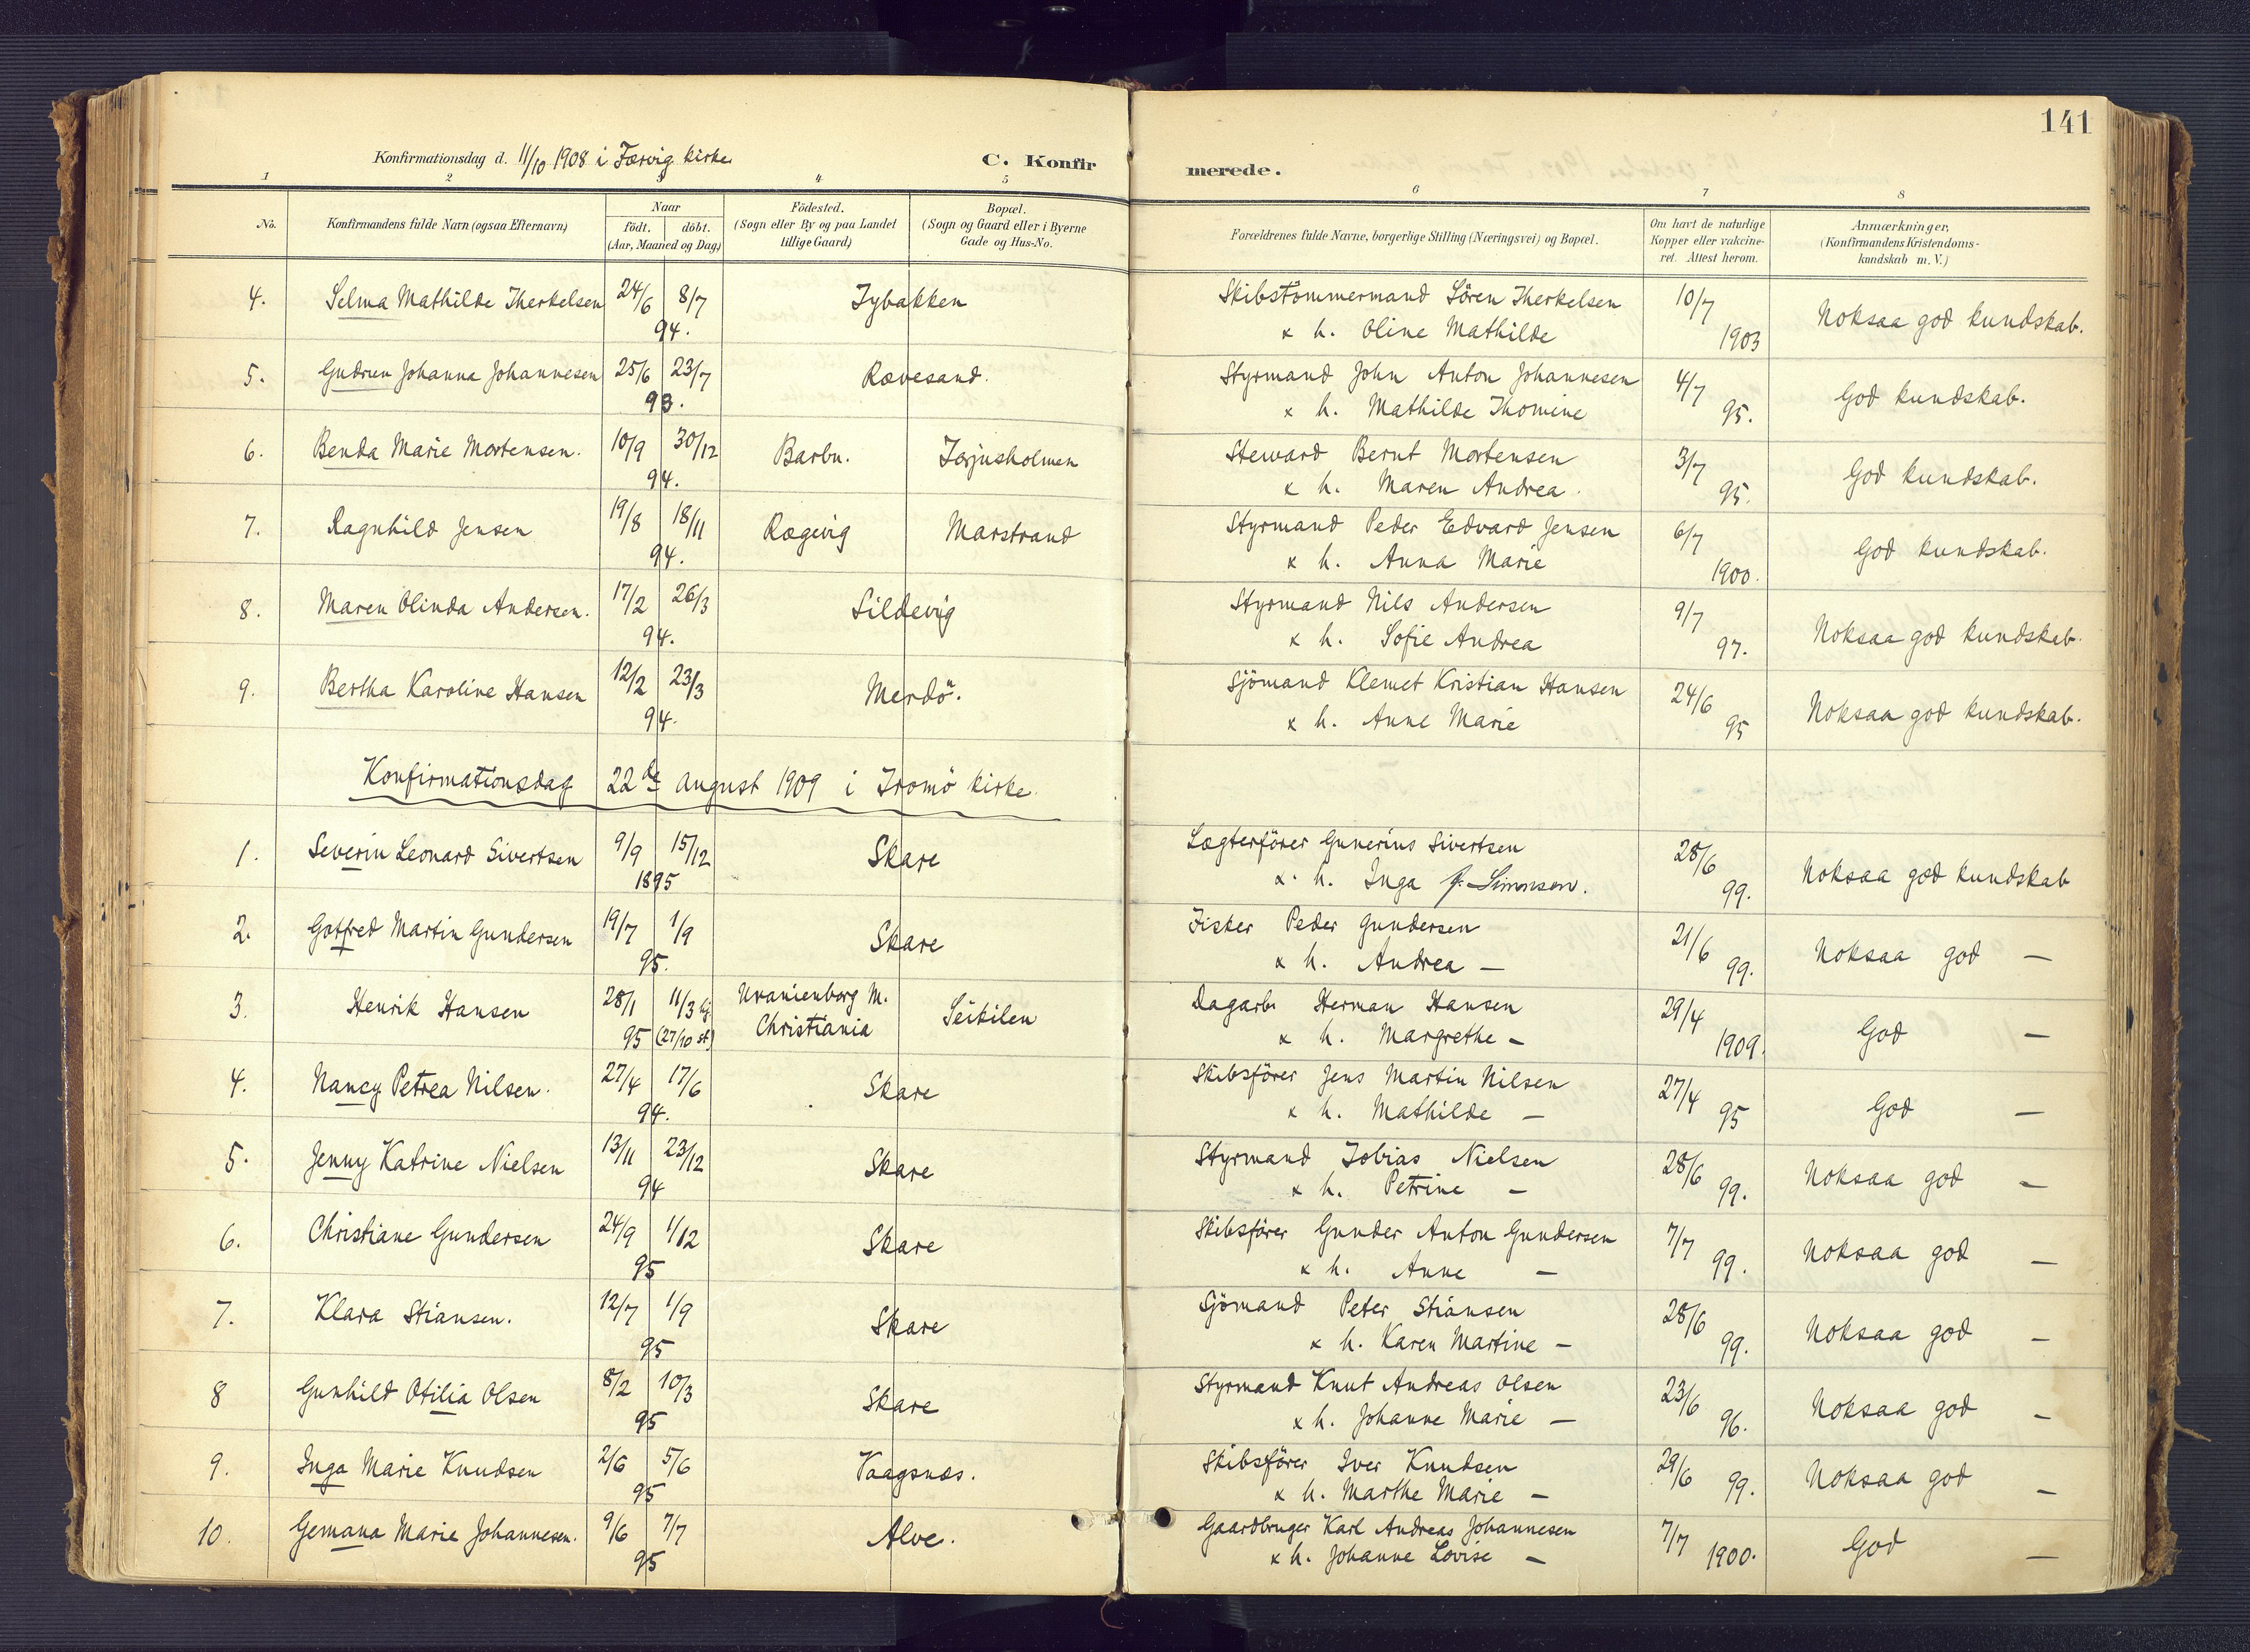 141
Konfirmationsdag d. 11/10 1908 i Færvig kirke
C. Konfirmerede.
1 2 3 4 5 6 7 8
No.
Konfirmandens fulde Navn (ogsaa Efternavn)
Naar
födt. döbt.
(Aar, Maaned og Dag)
Födested.
(Sogn eller By og paa Landet
tillige Gaard)
Bopæl.
(Sogn og Gaard eller i Byerne
Gade og Hus-No.
Forældrenes fulde Navne, borgerlige Stilling (Næringsvei) og Bopæl.
Om havt de naturlige
Kopper eller vakcine-
ret. Attest herom.
Anmærkninger,
(Konfirmandens Kristendoms-
kundskab m. V.)
4. Selma Mathilde Therkelsen 24/6 8/7 94. Tybakken Skibstömmermand Sören Therkelsen 10/7 1903 Noksaa god kundskab.
& h. Oline Mathilde
5. Gudrun Johanna Johannesen 25/6 23/7 93. Rævesand. Styrmand John Anton Johannesen 4/7 95. God kundskab.
& h. Mathilde Thomine
6. Benda Marie Mortensen. 10/9 30/12 94. Barbu. Torjusholmen Steward Bernt Mortensen 3/7 95. God kundskab.
& h. Maren Andrea.
7. Ragnhild Jensen 19/8 18/11 94. Rægevig Marstrand Styrmand Peder Edvard Jensen 6/7 1900. God kundskab.
& h. Anna Marie
8. Maren Olinda Andersen. 17/2 26/3 94. Sildevig Styrmand Nils Andersen 9/7 97. Noksaa god kundskab.
& h. Sofie Andrea
9. Bertha Karoline Hansen 12/2 23/3 94. Merdö. Sjömand Klemet Kristian Hansen 24/6 95 Noksaa god kundskab.
& h. Anne Marie
Konfirmationsdag 22de august 1909 i Tromö kirke.
1. Severin Leonard Sivertsen 9/9 15/12 1895 Skare Lægterförer Gunerius Sivertsen 28/6 99. Noksaa god kundskab
& h. Inga f. Simonsen.
2. Gotfred Martin Gundersen 19/7 1/9 95. Skare Fisker Peder Gundersen 21/6 99. Noksaa god —
& h. Andrea —
3. Henrik Hansen 28/1 11/3 hj. 95 (27/10 st) Uranienborg M. Christiania Seikilen Dagarb. Herman Hansen 29/4 1909. God —
& h. Margrethe —
4. Nancy Petrea Nilsen. 27/4 17/6 94. Skare Skibsförer Jens Martin Nilsen 27/4 95 God —
& h. Mathilde —
5. Jenny Katrine Nielsen 13/11 23/12 94 Skare Styrmand Tobias Nielsen 28/6 99. Noksaa god —
& h. Petrine —
6. Christiane Gundersen 24/9 1/12 95 Skare Skibsförer Gunder Anton Gundersen 7/7 99. Noksaa god —
& h. Anne —
7. Klara Stiansen. 12/7 1/9 95 Skare Sjömand Peter Stiansen 28/6 99. Noksaa god —
& h. Karen Martine —
8 Gunhild Otilia Olsen 8/2 10/3 95 Skare Styrmand Knut Andreas Olsen 23/6 96. Noksaa god —
& h. Johanne Marie —
9. Inga Marie Knudsen 2/6 5/6 95 Vaagsnæs. Skibsförer Iver Knudsen 29/6 99. Noksaa god —
& h. Marthe Marie —
10. Gemana Marie Johannesen. 9/6 7/7 95 Alve. Gaardbruger Karl Andreas Johannesen 7/7 1900. God —
& h. Johanne Lovise —